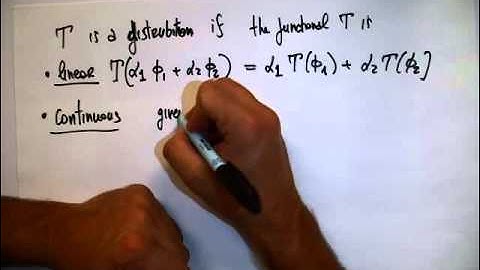 T is a distribution if the functional T is
• linear T(α₁ ϕ₁ + α₂ ϕ₂) = α₁ T(ϕ₁) + α₂ T(ϕ₂)
• continuous give